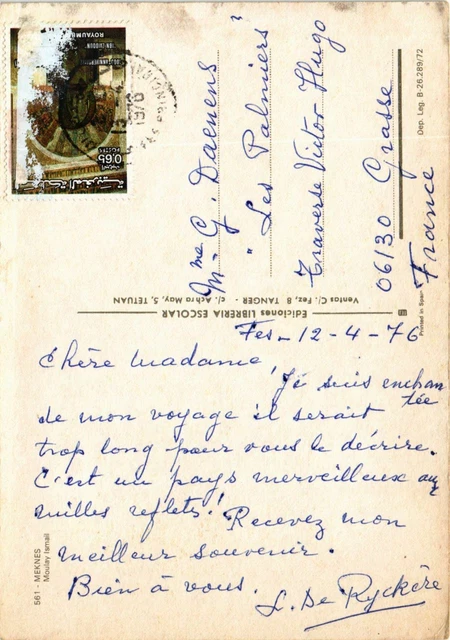 Fes - 12-4-76
Chère Madame,
Je suis enchan
tée
de mon voyage il serait
trop long pour vous le décrire.
C'est un pays merveilleux aux
milles reflets! Recevez mon
meilleur souvenir.
Bien à vous.
L. De Ryckère
Mme G. Daenens
"Les Palmiers"
Traverse Victor Hugo
06130 Grasse
France
Ediciones LIBRERIA ESCOLAR
Ventas C/. Fez, 8 TANGER - c/. Achra May, 5, TETUAN
Dep. Leg. B-26.289/72
Printed in Spain
561 - MEKNES
Moulay Ismail
0,65
POSTES